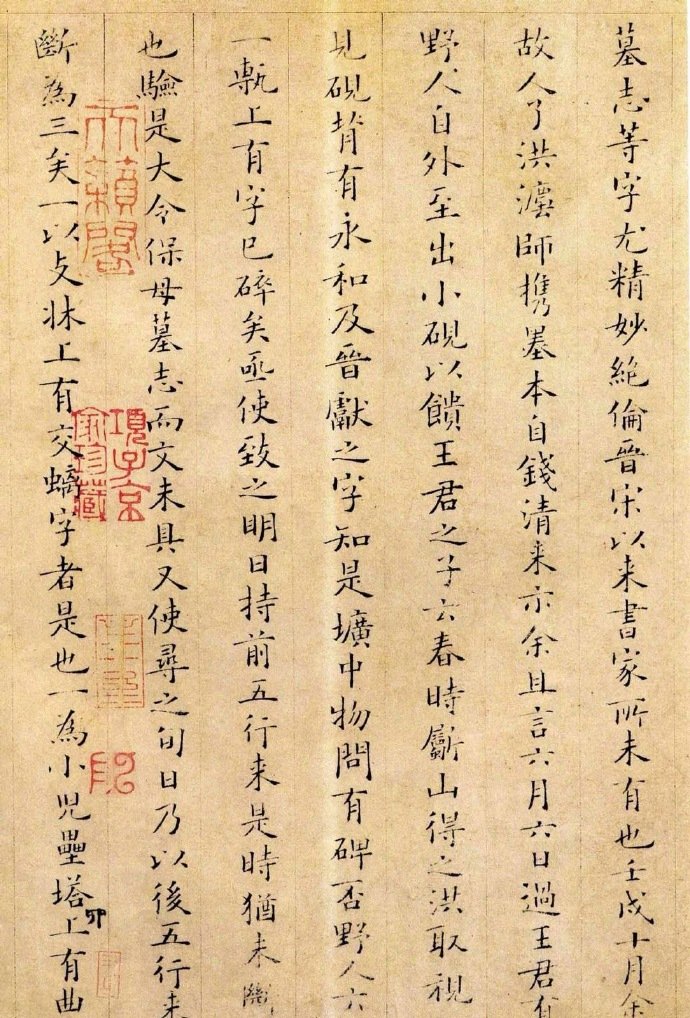 墓志等字尤精妙絕倫晉宋以来書家所未有也壬戌十月余
故人了洪灋師攜墨本自錢清来示余且言六月六日過王君有
野人自外至出小硯以饋王君之子云春時斸山得之洪取視
見硯背有永和及晉獻之字知是壙中物問有碑否野人云
一甎上有字已碎矣亟使致之明日持前五行来是時猶未斷
也驗是大令保母墓志而文未具又使尋之旬日乃以後五行来
斷為三矣一以支牀上有交螭字者是也一為小兒壘塔上有曲
天籟閣
項子京家珍藏
卯